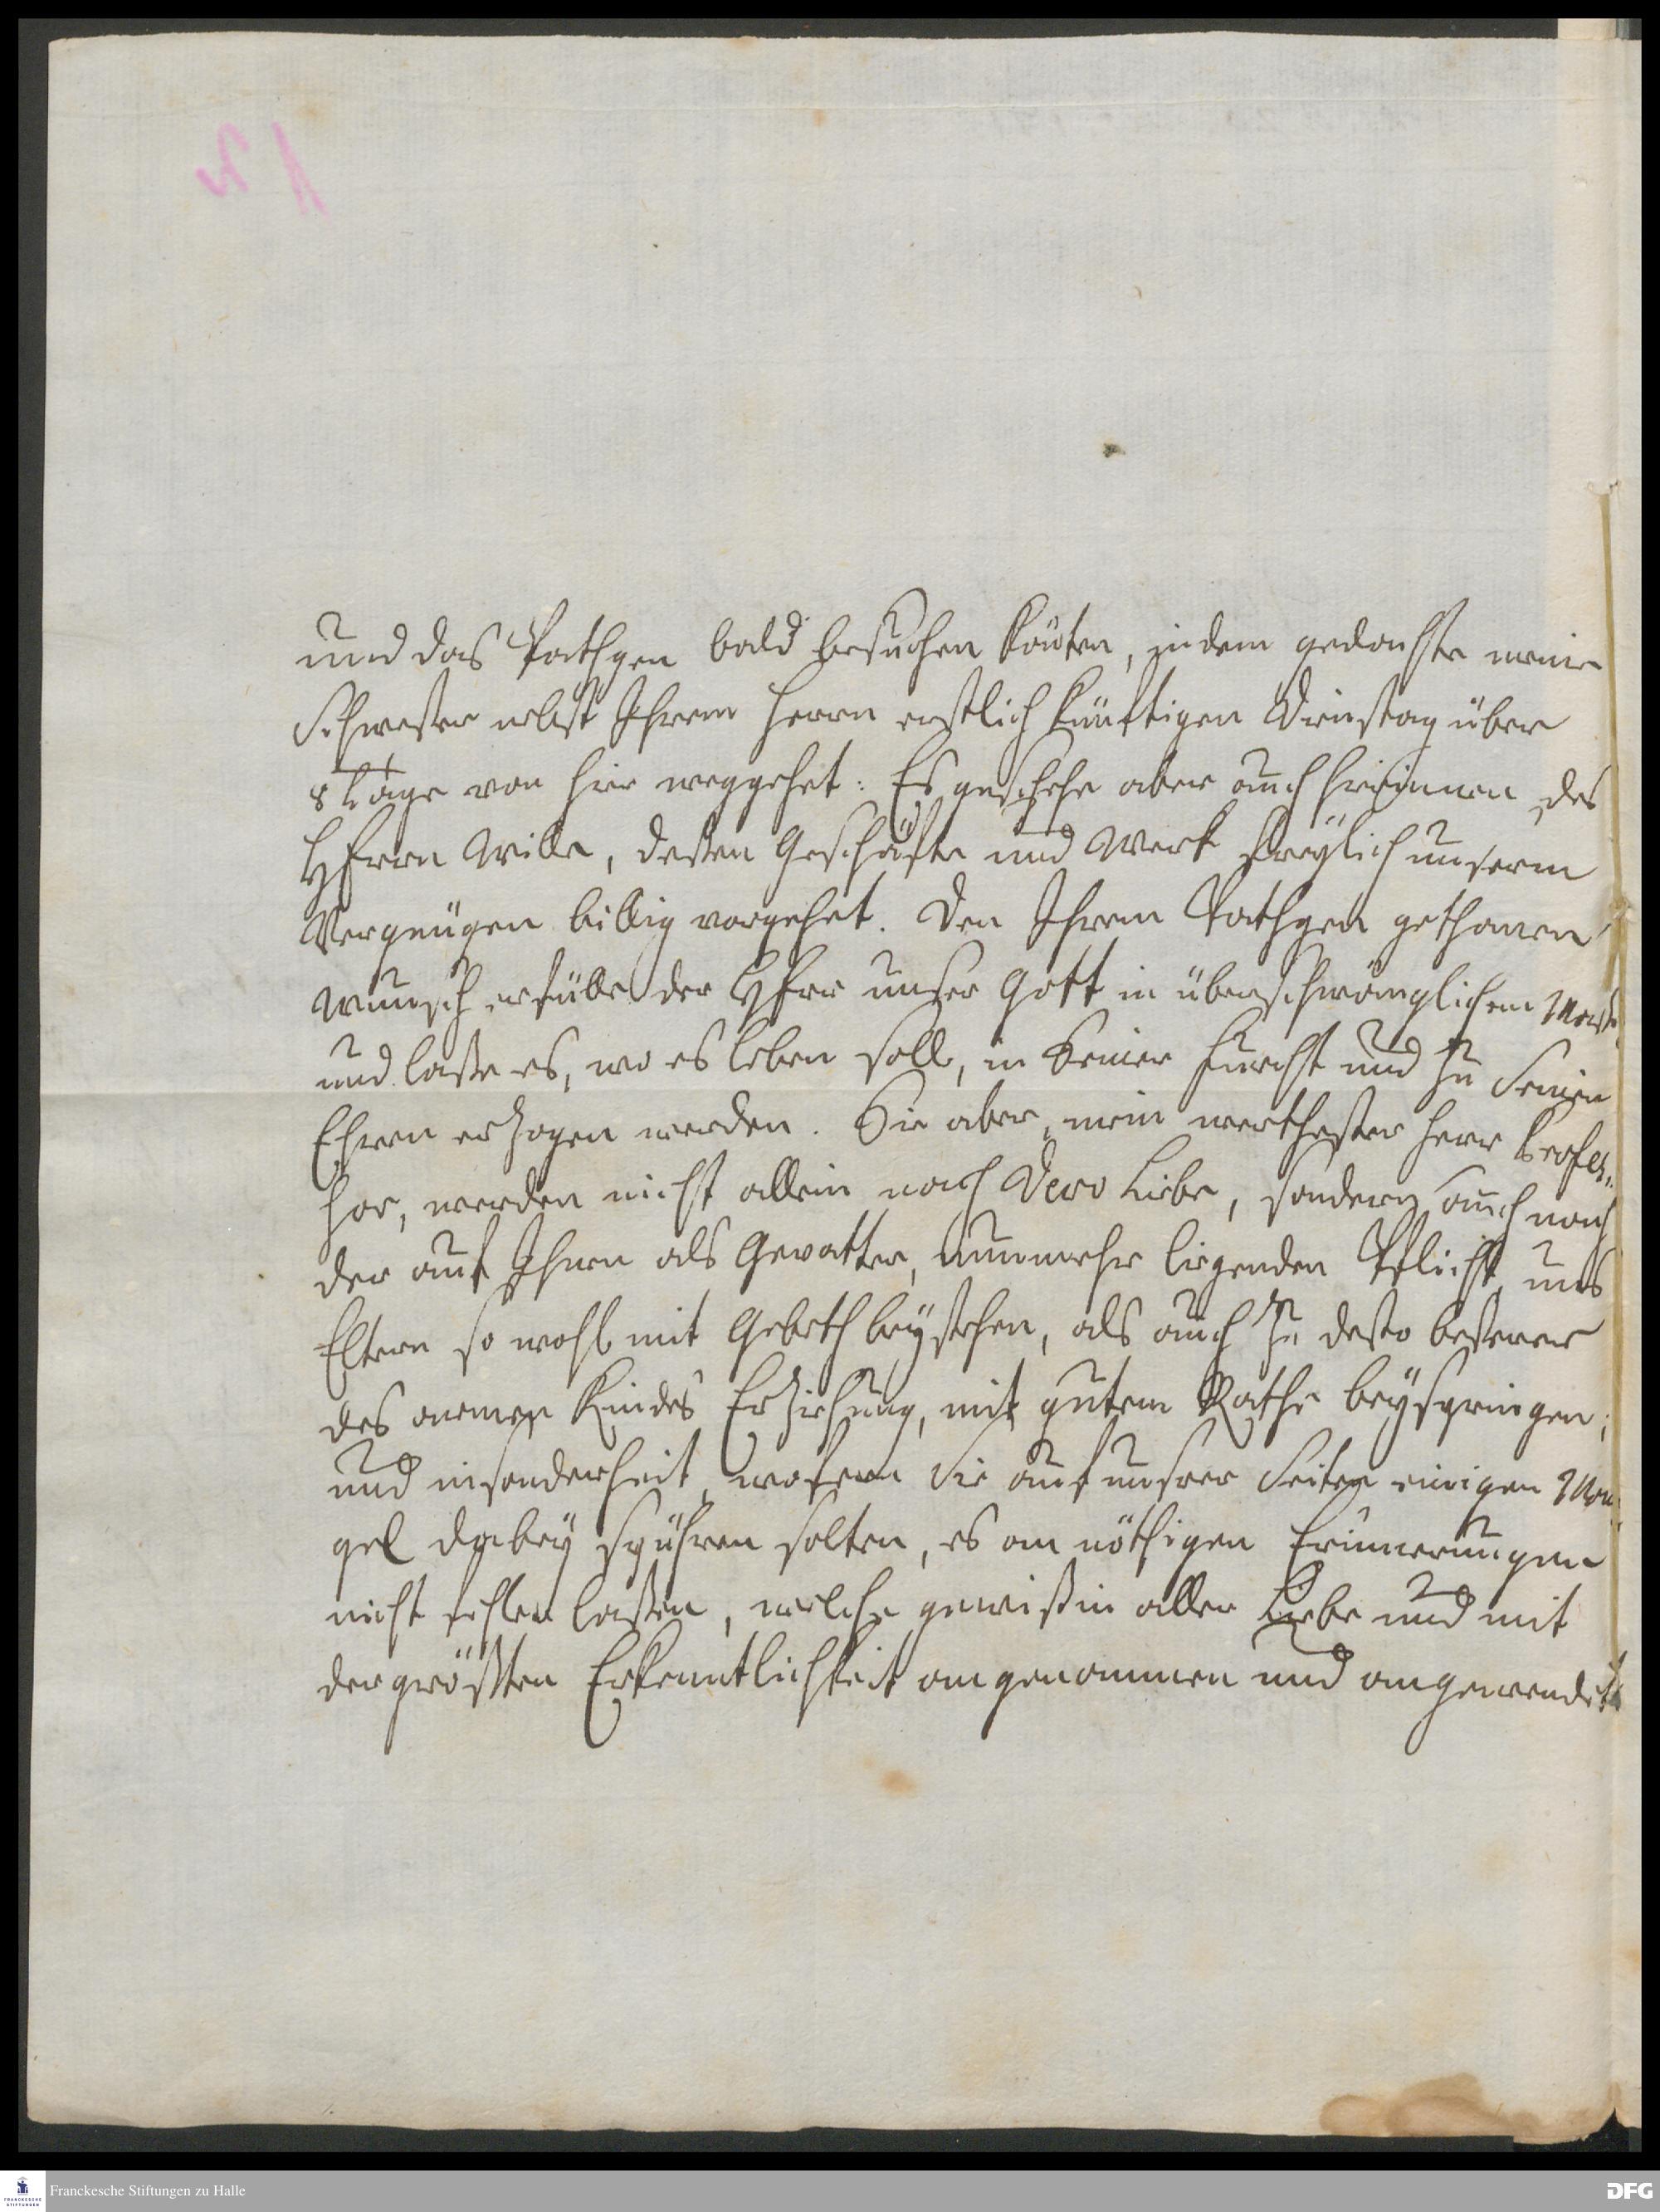 und das Pathgen bald besuchen könten, indem gedachte meine
Schwester nebst Ihrem Herrn erstlich künftigen Dienstag über
8 Tage von hier weggehet: Es geschehe aber auch hierinnen des
HErrn Wille, deßen Geschäfte und Werk freylich unserm
Vergnügen billig vorgehet. Den Ihrem Pathgen gethanen
Wunsch erfülle der HErr unser Gott in überschwänglichem Maße
und laße es, wo es leben soll, in Seiner Furcht und zu Seinen
Ehren erzogen werden. Sie aber, mein werthester Herr Profes-
sor, werden nicht allein nach Dero Liebe, sondern auch nach
der auf Ihnen als Gevatter, nunmehr liegenden Pflicht, uns
Eltern so wohl mit Gebeth beystehen, als auch zu desto beßerer
des armen Kindes Erziehung, mit gutem Rathe beyspringen;
und insonderheit, wofern Sie auf unsrer Seiten einigen Man-
gel dabey spühren solten, es an nöthigen Erinnerungen
nicht fehlen laßen, welche gewiß in aller Liebe und mit
der größten Erkenntlichkeit angenommen und angewendet
Franckesche Stiftungen zu Halle
FRANCKESCHE STIFTUNGEN
DFG